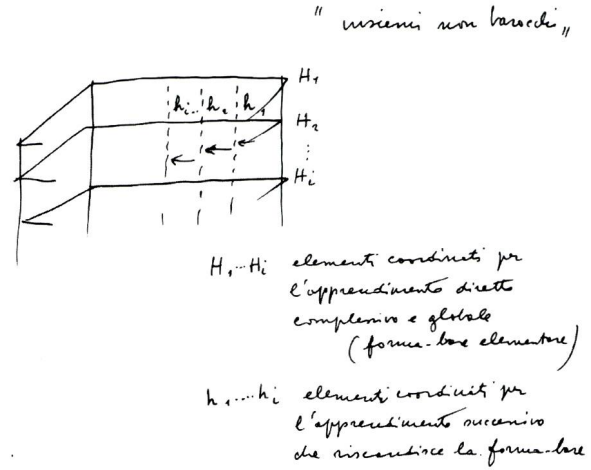 " insiemi non barocchi "
H₁
hᵢ... h₂ h₁
H₂
⋮
Hᵢ
H₁...Hᵢ elementi coordinati per
l'apprendimento diretto
complessivo e globale
(forma-base elementare)
h₁....hᵢ elementi coordinati per
l'apprendimento successivo
che riscandisce la forma-base